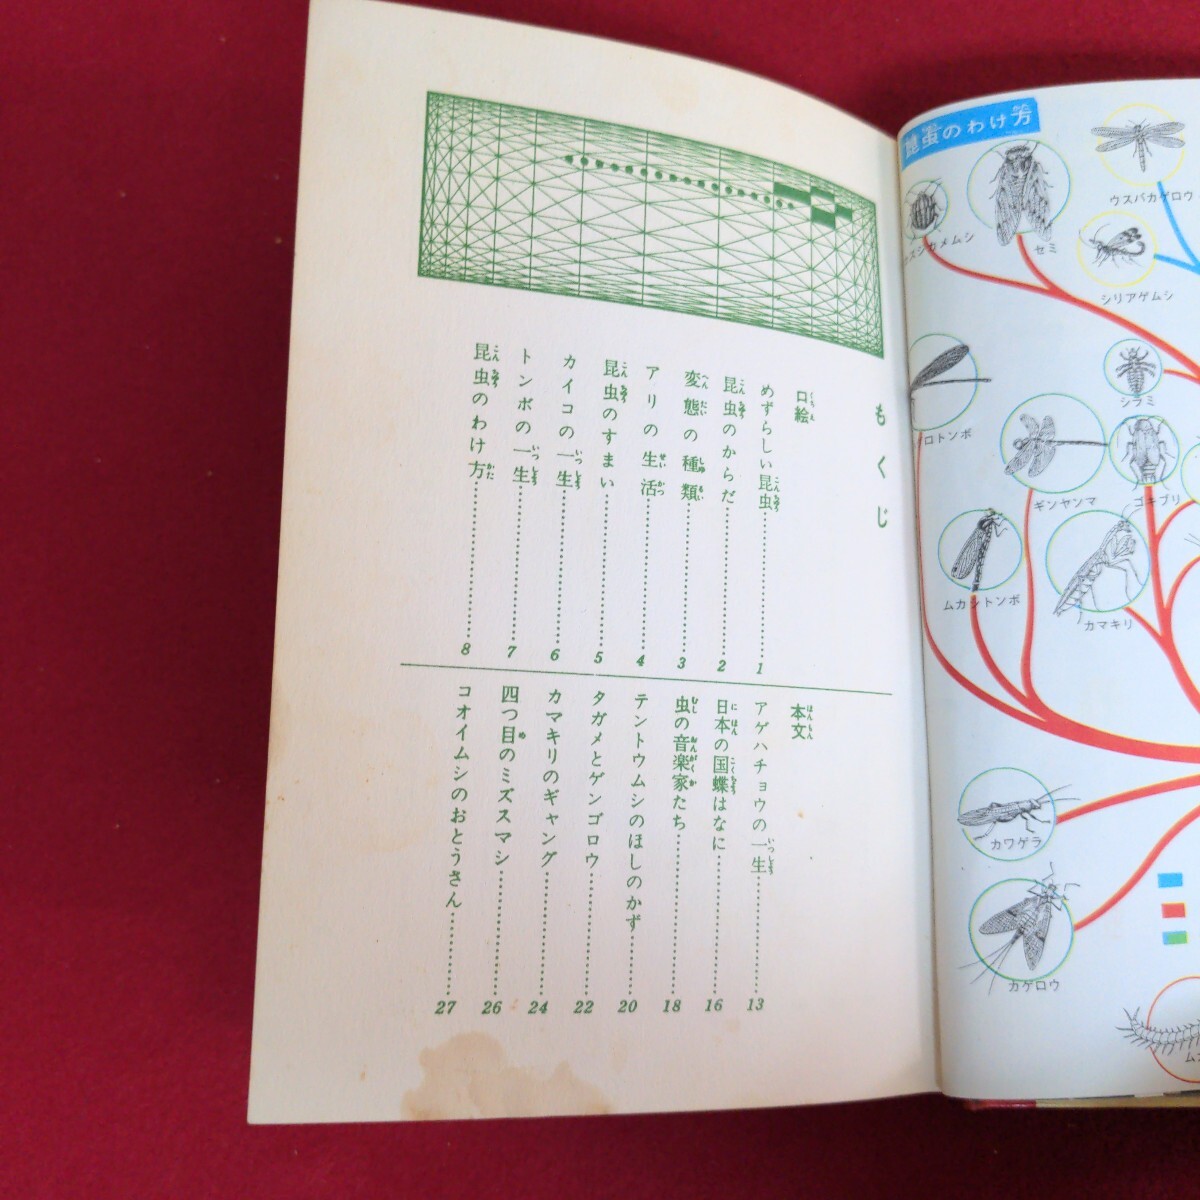 もくじ
口絵
めずらしい昆虫……………1
昆虫のからだ……………2
変態の種類……………3
アリの生活……………4
昆虫のすまい……………5
カイコの一生……………6
トンボの一生……………7
昆虫のわけ方……………8
本文
アゲハチョウの一生……………13
日本の国蝶はなに……………16
虫の音楽家たち……………18
テントウムシのほしのかず……………20
タガメとゲンゴロウ……………22
カマキリのギャング……………24
四つ目のミズスマシ……………26
コオイムシのおとうさん……………27
昆虫のわけ方
ウスバカゲロウ
セミ
スジカメムシ
シリアゲムシ
シラミ
ロトンボ
ギンヤンマ
ゴキブリ
ムカシトンボ
カマキリ
カワゲラ
カゲロウ